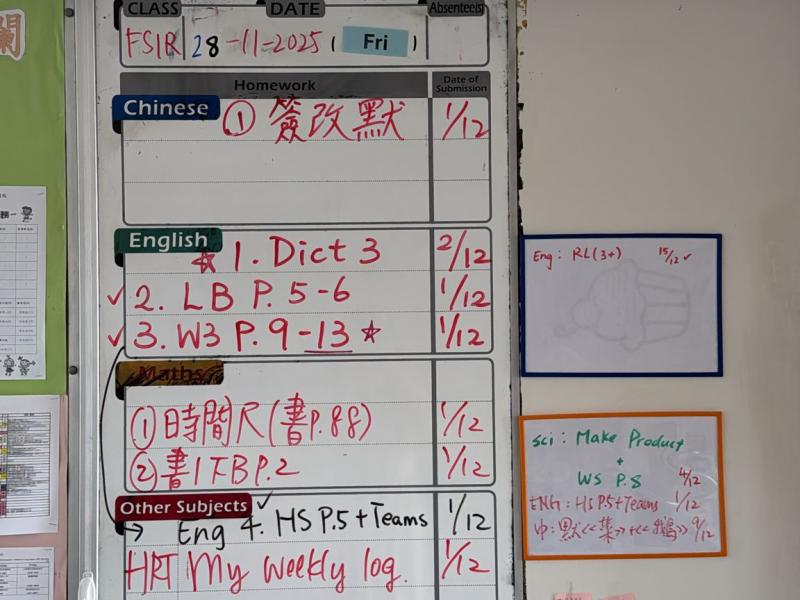 CLASS DATE Absentee(s)
FSIR 28-11-2025 ( Fri )
Homework Date of Submission
Chinese ① 簽改默 1/12
English ☆ 1. Dict 3 2/12
✓ 2. LB P. 5-6 1/12
✓ 3. W3 P. 9-13 ☆ 1/12
Maths
① 時間尺(書P.88) 1/12
② 書1下B P.2 1/12
Other Subjects ✓
→ Eng 4. HS P.5 + Teams 1/12
HRT My weekly log. 1/12
Eng: RL(3+) 15/12 ✓
Sci: Make Product
+
WS P.8 4/12
ENG: HS P.5+Teams 1/12
中: 默 9/12